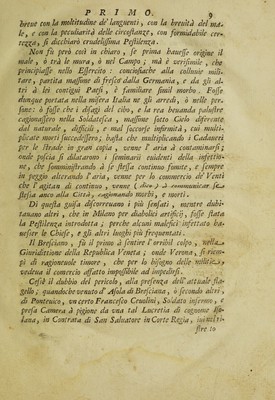 PRIMO. 9
breue con la moltitudine de' languenti, con la breuità del ma-
le, e con la peculiarità delle circostanze, con formidabile cer-
tezza, si dicchiarò crudelissima Pestilenza.
Non fù però così in chiaro, se prima hauesse origine il
male, ò trà le mura, ò nel Campo; mà è verisimile, che
principiasse nello Essercito: concisiasche alla colluuie mili-
tare, partita massime di fresco dalla Germania, e da gli al-
tri à lei contigui Paesi, è familiare simil morbo. Fosse
dunque portata nella misera Italia ne gli arredi, ò nelle per-
sone: ò fosse che i disagi del cibo, e la rea beuanda palustre
cagionassero nella Soldatesca, massime sotto Cielo differente
dal naturale, difficili, e mal soccorse infermità, cui multi-
plicate morti succedessero; basta che multiplicando i Cadaueri
per le strade in gran copia, venne l'aria à contaminarsi;
onde poscia si dilatarono i seminarij euidenti della infettio-
ne, che somministrando à se stessa continuo fomite, e sempre
in peggio alterando l'aria, venne per lo commercio de' Venti
che l'agitan di continuo, venne à communicar se
stessa anco alla Città, cagionando morbi, e morti.
Di questa guisa discorreuano i più sensati, mentre dubi-
tauano altri, che in Milano per diabolici artificij, fosse stata
la Pestilenza introdutta; perche alcun malefico infettato ha-
uesser le Chiese, e gli altri luoghi più frequentati.
Il Bresciano, fù il primo à sentire l'orribil colpo, nella
Giuridittione della Republica Veneta; onde Verona, si riem-
pì di ragioneuole timore, che per lo bisogno delle militie,
vedeua il comercio affatto impossibile ad impedirsi.
Cessò il dubbio del pericolo, alla presenza dell'attuale fla-
gello; quandoche venuto d'Asola di Bresciana, ò secondo altri,
di Ponteuico, un certo Francesco Ceuolini, Soldato infermo, e
presa Camera à pigione da vna tal Lucretia di cognome Iso-
lana, in Contrata di San Saluatore in Corte Regia,
stre to